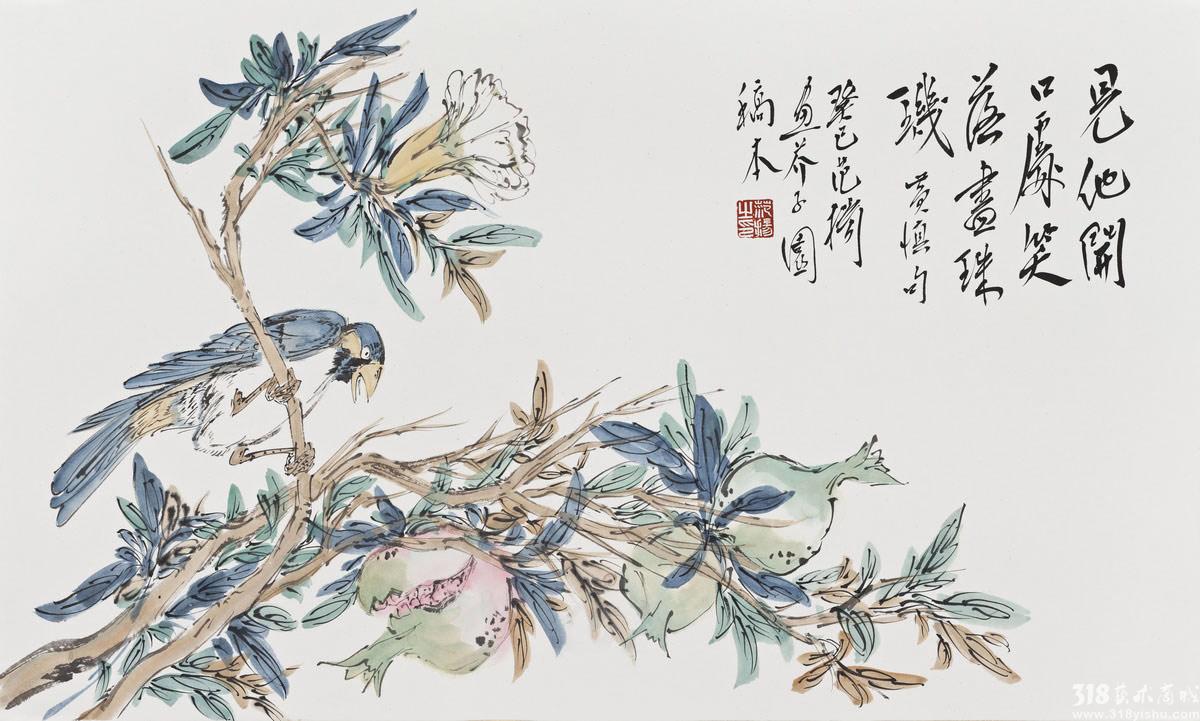 見他開
口處笑
落盡珠
璣 黃慎句
癸巳范揚
畫芥子園
稿本
范揚之印
318艺术商城
www.318yishu.com